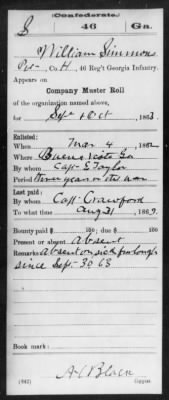 Confederate.
S 46 Ga.
William Simmons
Pvt, Co. H, 46 Reg't Georgia Infantry.
Appears on
Company Muster Roll
of the organization named above,
for Sept & Oct, 1863.
Enlisted:
When Mar 4, 1862
Where Buena Vista Ga
By whom Capt E Taylor
Period three years or the war
Last paid:
By whom Capt Crawford
To what time Aug 31, 1863.
Bounty paid $ 100; due $ 100
Present or absent Absent
Remarks: Absent on sick furlough
since Sept 30 63
Book mark:
(642) Copyist.